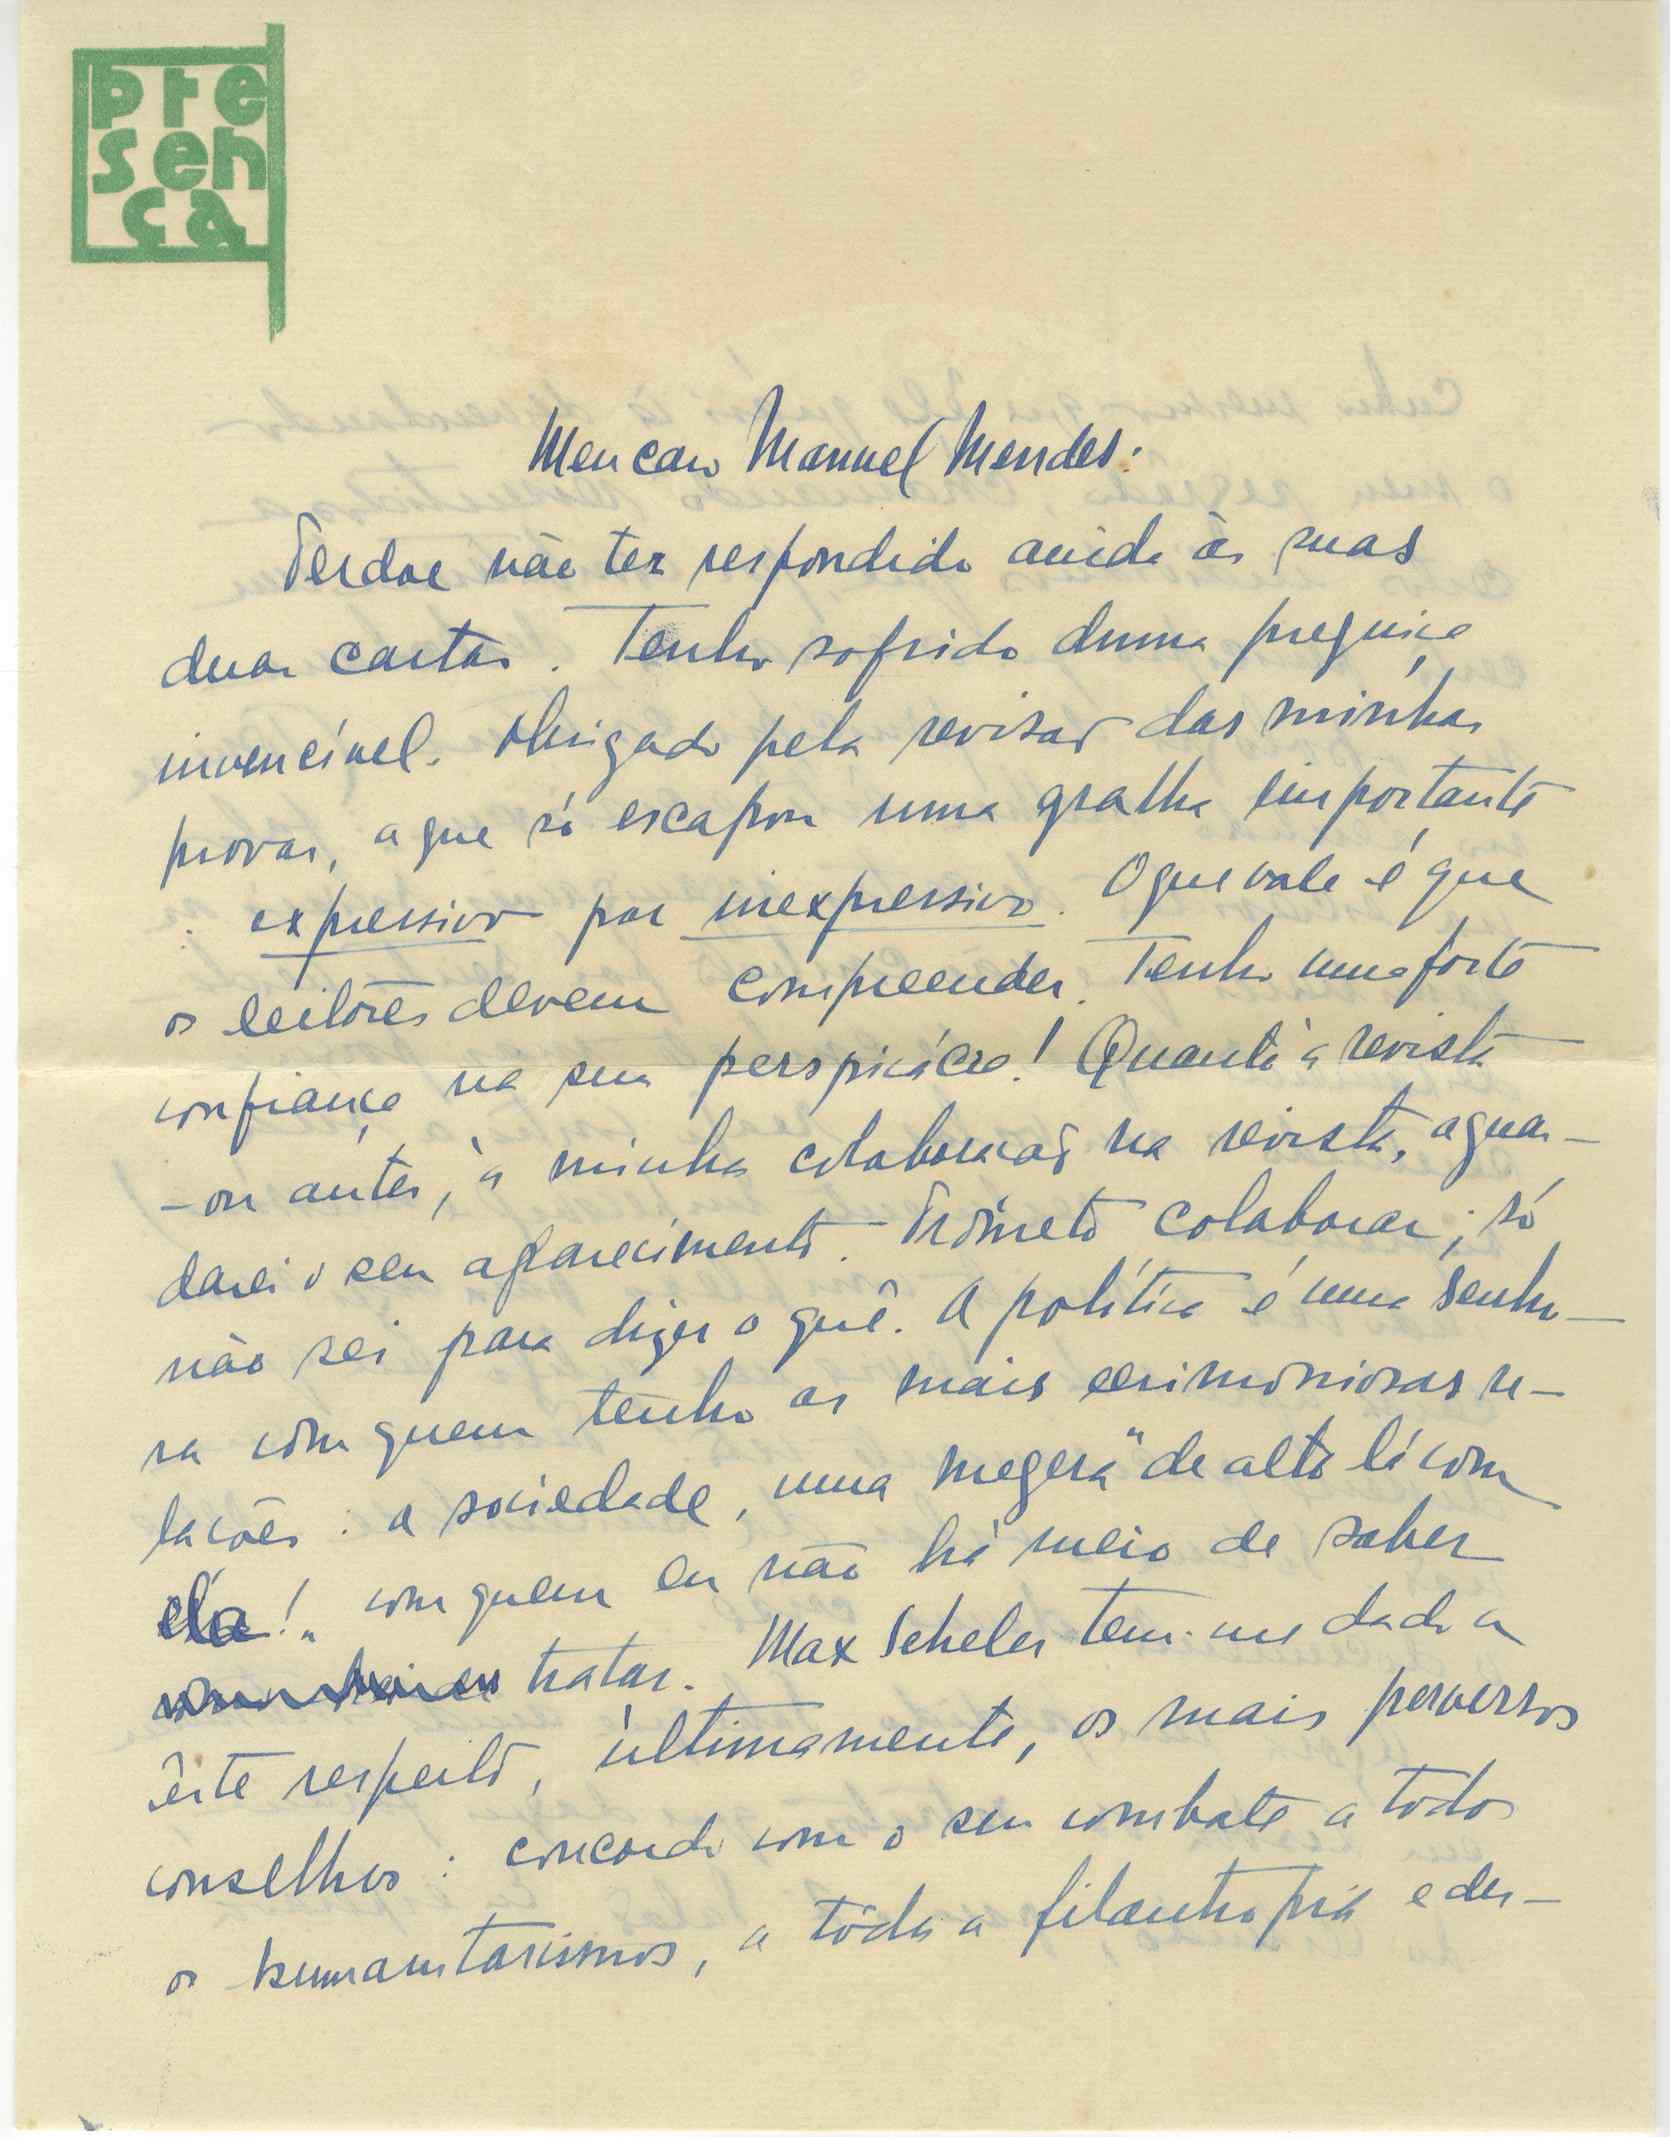 pre
sen
ça
Meu caro Manuel Mendes:
Perdoe não ter respondido ainda às suas
duas cartas. Tenho sofrido duma preguiça
invencível. Obrigado pela revisão das minhas
provas, a que só escapou uma gralha importante
: expressivo por inexpressivo. O que vale é que
os leitores devem compreender. Tenho uma forte
confiança na sua perspicácia! Quanto à revista
-ou antes, à minha colaboração na revista, aguar-
darei o seu aparecimento. Prometo colaborar; só
não sei para dizer o quê. A política é uma senho-
ra com quem tenho as mais cerimoniosas re-
lações: a sociedade, uma megera "de alto lá com
ela!" com quem eu não há meio de saber
tratar. Max Scheler tem-me dado a
êste respeito, últimamente, os mais perversos
conselhos: concordo com o seu combate a todos
os humanitarismos, a tôda a filantropia e des-